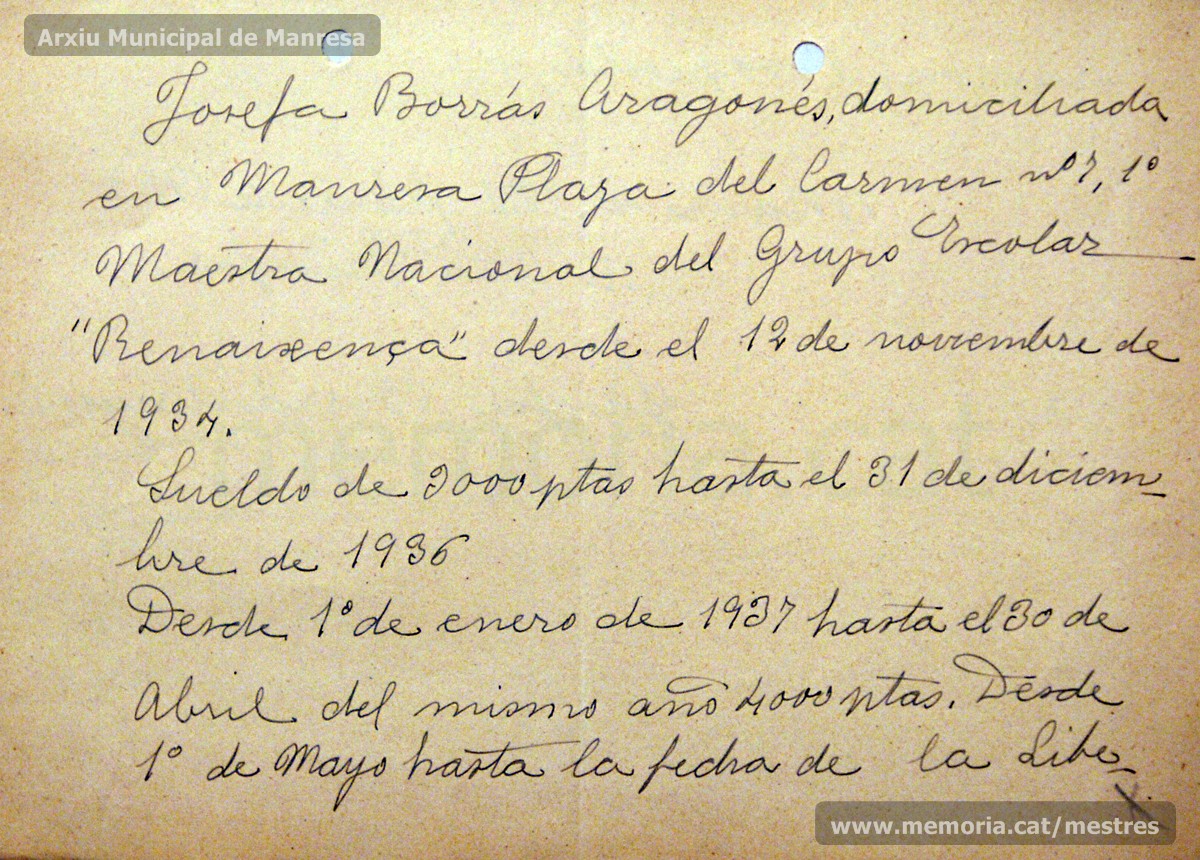 Arxiu Municipal de Manresa
Josefa Borrás Aragonés, domiciliada
en Manresa Plaza del Carmen nº 7, 1º
Maestra Nacional del Grupo Escolar
"Renaixença" desde el 12 de noviembre de
1934.
Sueldo de 3000 ptas hasta el 31 de diciem-
bre de 1936
Desde 1º de enero de 1937 hasta el 30 de
Abril del mismo año 4000 ptas. Desde
1º de Mayo hasta la fecha de la Libe-
www.memoria.cat/mestres